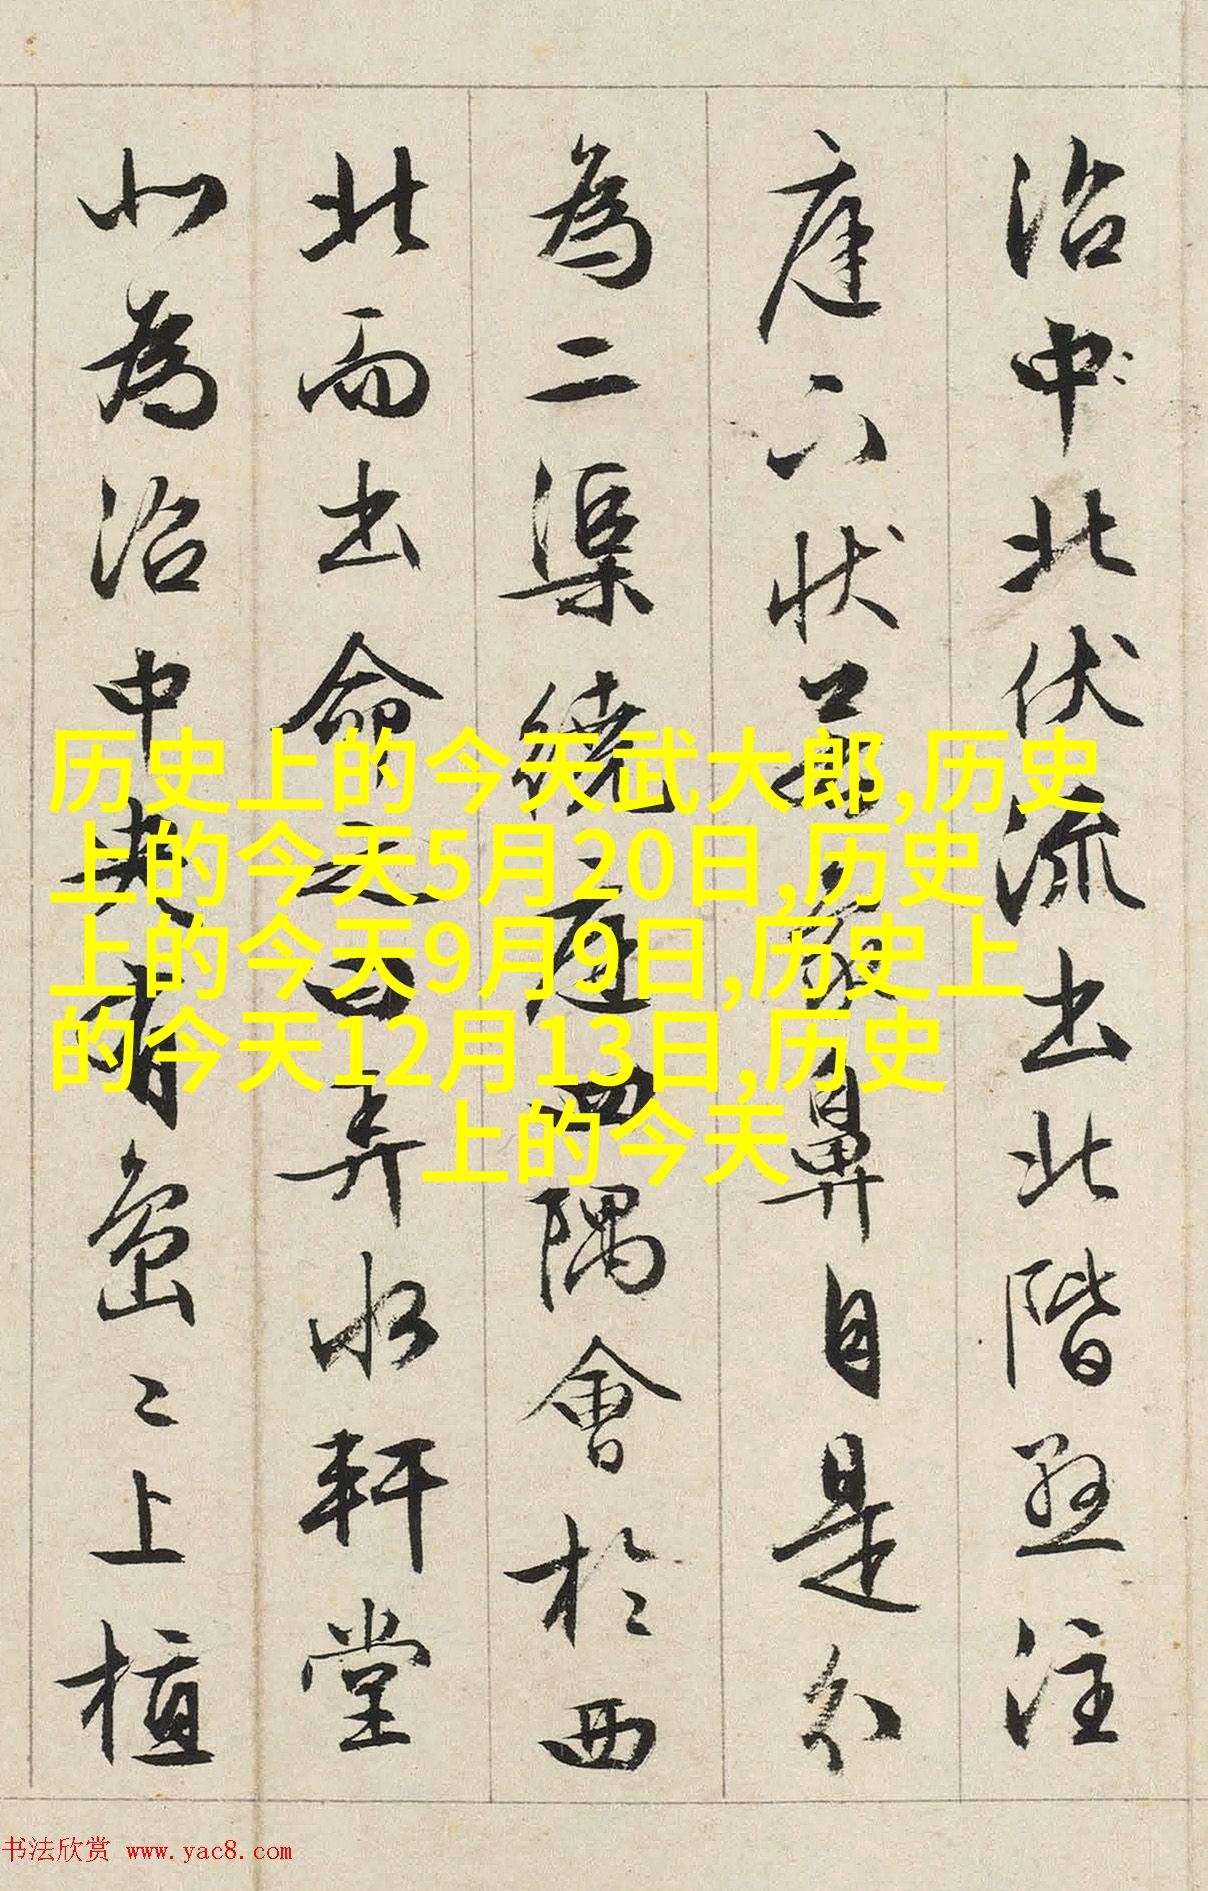 沼中北伏流出北階懸注
庭下状若象鼻自是分
為二渠繞庭四隅會於西
北而出命之曰弄水軒堂
北為沼中央有島〻上植
历史上的今天武大郎,历史
上的今天5月20日,历史
上的今天9月9日,历史上
的今天12月13日,历史
上的今天
书法欣赏 www.yac8.com